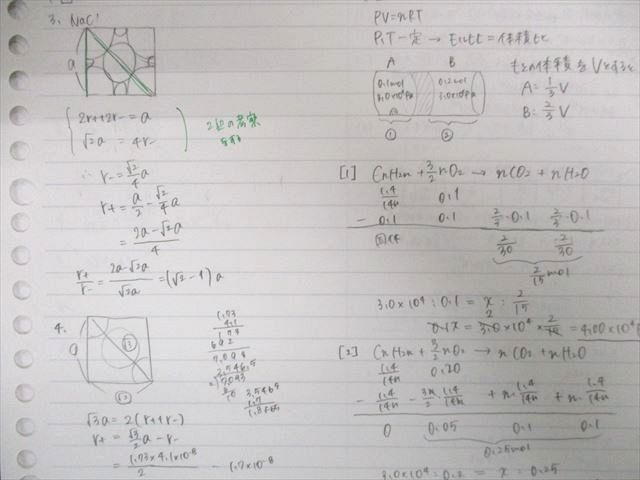 3. NaCl
a
2r+ + 2r- = a
√2a = 4r-
2辺の考察
∴ r- = √2/4 a
r+ = a/2 - √2/4 a
= 2a-√2a/4
r+/r- = 2a-√2a/√2a = (√2-1)a
4.
a
√3
√2
1.73
4.1
173
692
7.093
√3a = 2(r+ + r-)
r+ = √3/2 a - r-
= 1.73×4.1×10⁻⁸/2 - 1.7×10⁻⁸
PV=nRT
P,T一定 → モル比=体積比
A B
0.1mol 0.2mol
3.0×10⁴Pa 3.0×10⁴Pa
① ②
もとの体積をVとすると
A = 1/3 V
B = 2/3 V
[1] CnH2n + 3/2 nO2 → nCO2 + nH2O
1.4/14n 0.1
- 0.1 0.1 2/3・0.1 2/3・0.1
2/30 2/30
2/15 mol
3.0×10⁴ : 0.1 = x : 2/15
0.1x = 3.0×10⁴ × 2/15 = 4.00×10⁴
[2] CnH2n + 3/2 nO2 → nCO2 + nH2O
1.4/14n 0.20
- 1.4/14n - 3n/2・1.4/14n + n・1.4/14n + n・1.4/14n
0 0.05 0.1 0.1
0.25mol
3.0×10⁴ : 0.2 = x : 0.25